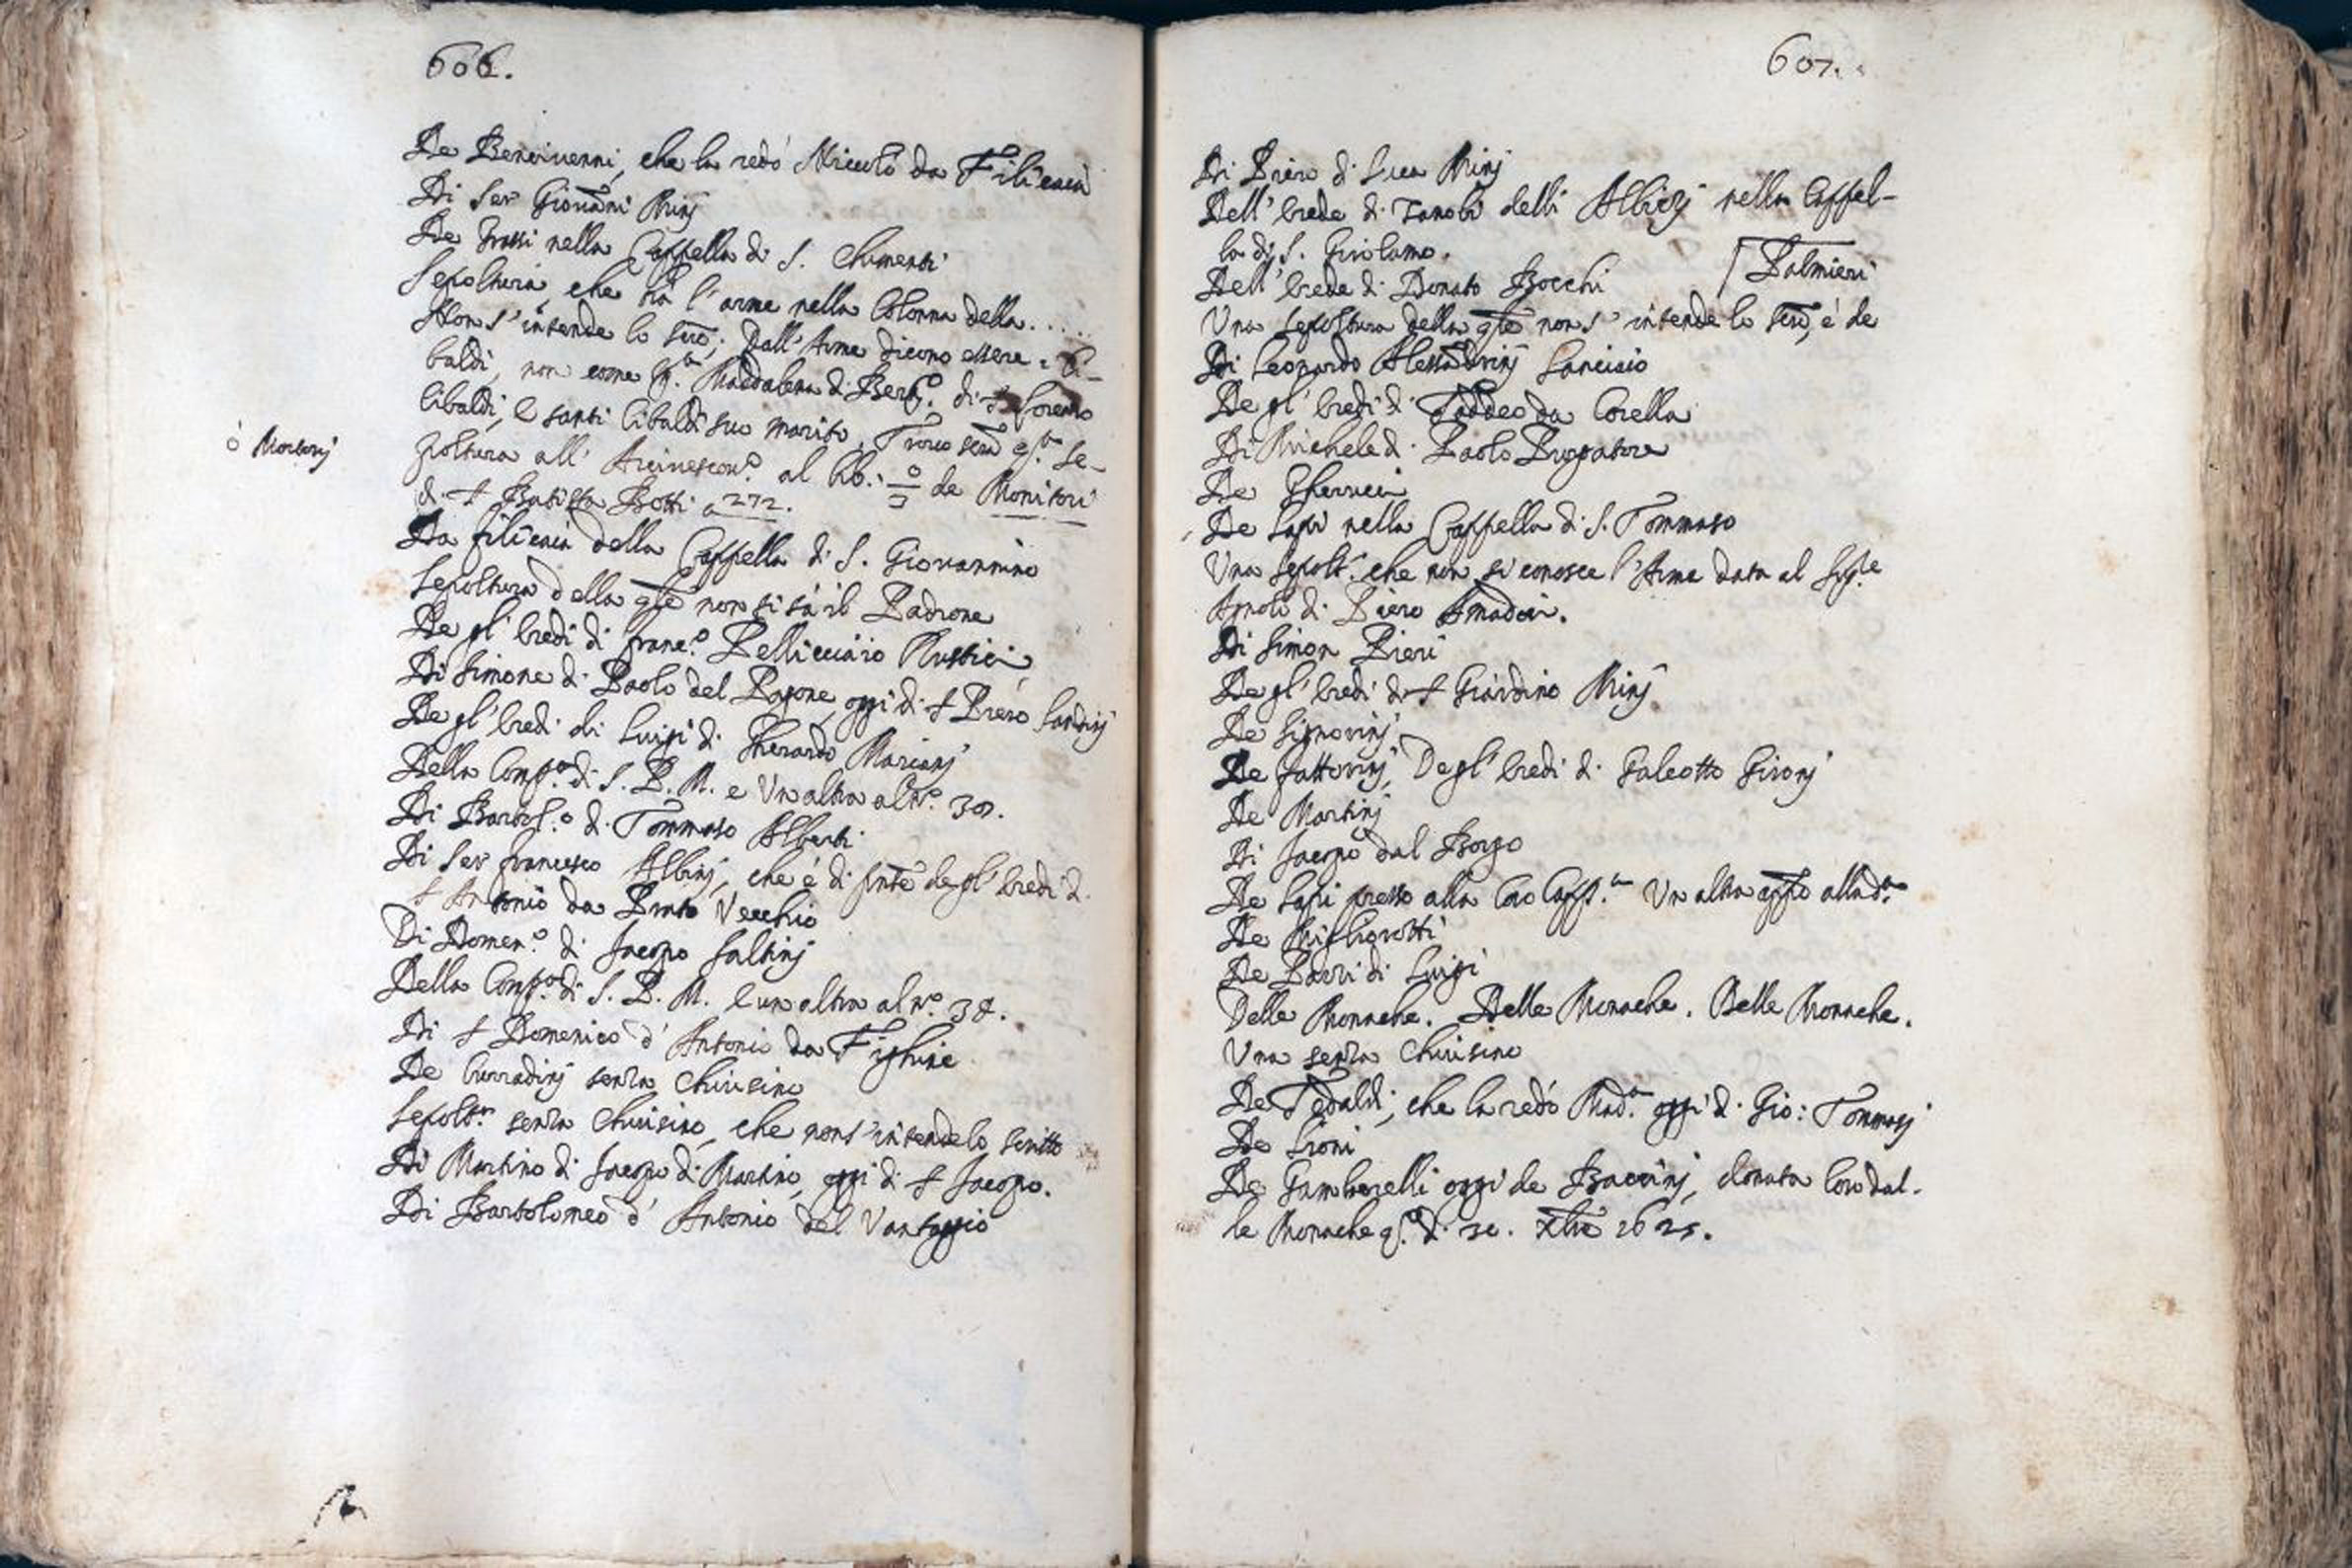 606.
De Bencivenni, che la redò Niccolò da Filicaia
Di Ser Giovãni Minj
De Grassi nella Cappella di S. Chimenti
Sepoltura, che hà l'arme nella Colonna della....
Non s'intende lo scrõ; Dall'Arme dicono essere Ci-
baldi, non come Mª. Maddalena di Berº. di Lorenzo
Cibaldi, e Santi Cibaldi suo marito. Trovo
ò Martinj
poltura all' Arcivescouº. al lib.: de Monitori
di Batista Botti a 272.
Da Filicaia della Cappella di S. Giovannino
Sepoltura della qle non si sà il Padrone
De gl'eredi di Francº. Pellicciaio Rustici
Di Simone di Paolo del Pagone, oggi di Piero Sandinj
De gl'eredi di Luigi di Gherardo Marianj
Della Compª. di S. P. M. e Un altra al nº. 30.
Di Bartolº. di Tommaso Alberti
Di Ser Francesco Albinj, che è di pñte degl'eredi di
Antonio da Prato Vecchio
Di Domenº. di Jacopo Saltinj
Della Compª. di S. P. M. e un altra al nº. 38.
Di Domenico d'Antonio da Fighine
De Curradinj senza Chiusino
Sepoltª. senza Chiusino, che non s'intende lo scritto
Di Martino di Jacopo di Martino, oggi di Jacopo.
Di Bartolomeo d'Antonio del Vantaggio
607.
Di Piero di Luca Minj
Dell'erede di Zanobi delli Albizj nella Cappel-
la di S. Girolamo.
Dell'erede di Donato Bocchi
Palmieri
Una sepoltura della qle non s'intende lo scrõ, è de
Di Leonardo Alessãdrinj Lanciaio
De gl'eredi di Taddeo da Corella
Di Michele di Paolo Purgatore
De Gherucci
De Lapi nella Cappella di S. Tommaso
Una sepoltª. che non si conosce l'Arme data al
Agnolo di Piero Amadori.
Di Simon Pieri
De gl'eredi di Giardino Minj
De Signorinj
De Fattorinj, Degl'eredi di Galeotto Gironj
De Martinj
Di Jacopo dal Borgo
De Lapi presso alla loro Capplª. Un altra appo allad.ª
De Migliorotti
De Parri di Luigi
Delle Monache. Delle Monache. Delle Monache.
Una senza Chiusino
De Tedaldi, che la redò Madª. oggi di Gio: Tommasj
De Lioni
De Gamberelli oggi de Baccinj, donata loro dal-
le Monache qº. dì 20. Xbre 1625.